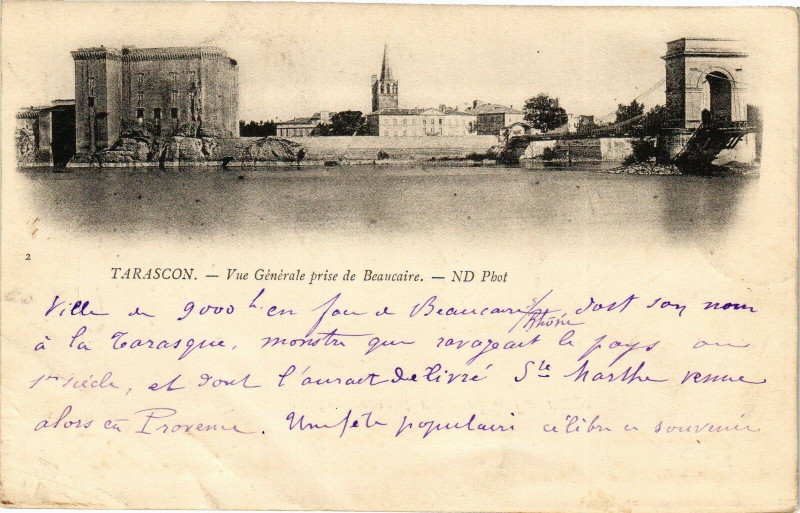 2
TARASCON. — Vue Générale prise de Beaucaire. — ND Phot
Ville de 9000 h. en face de Beaucaire s/ Rhône doit son nom
à la Tarasque, monstre qui ravageait le pays au
1er siècle, et dont l'aurait délivré Ste Marthe venue
alors en Provence. Une fête populaire célèbre ce souvenir